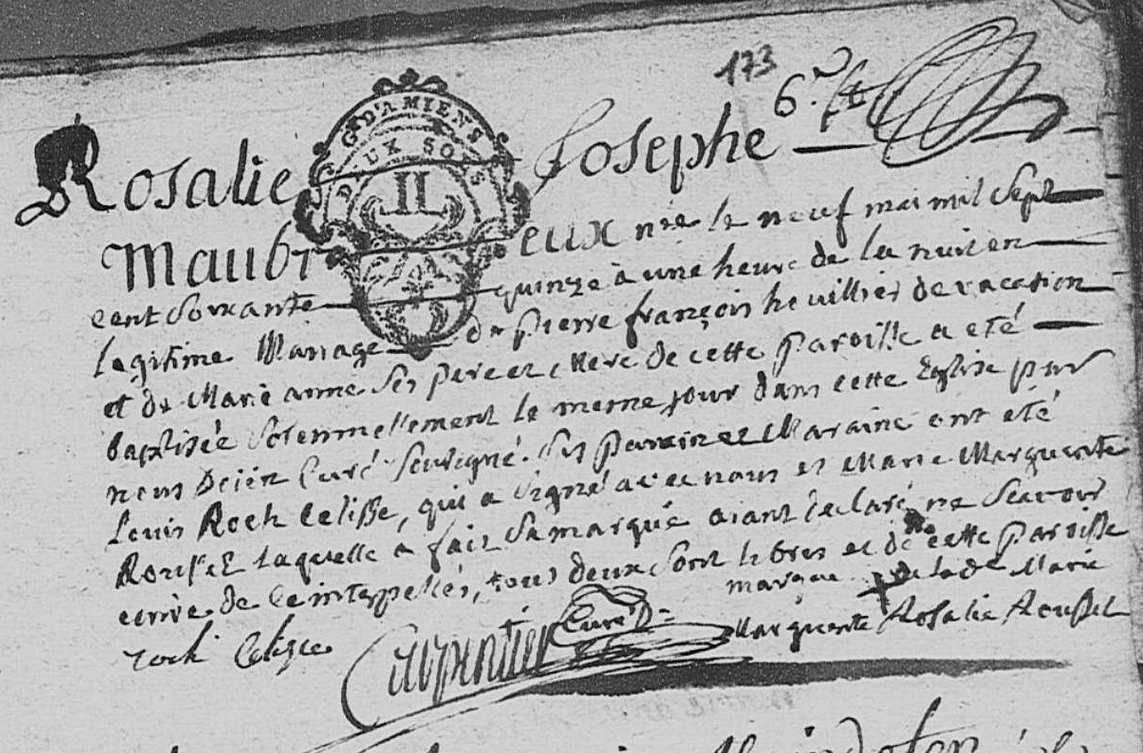 173
6.
G. D'AMIENS
DEUX SOLS
II
Rosalie Josephe
Maubreux née le neuf mai mil sept
cent soixante quinze à une heure de la nuit en
legitime Mariage de pierre françois houillier de vacation
et de Marie anne ses pere et Mere de cette paroisse a eté
baptisée solemnellement le meme jour dans cette Eglise par
nous Curé soussigné. ses parein et Maraine ont eté
Louis Roch Celisse, qui a signé avec nous et Marie Marguerite
laquelle a fait sa marque aiant declaré ne sçavoir
ecrire de ce interpellés, tous deux sont libres et de cette paroisse
marque de Marie
roch Celisse Carpentier Curé D= Marguerite Rosalie Roussel